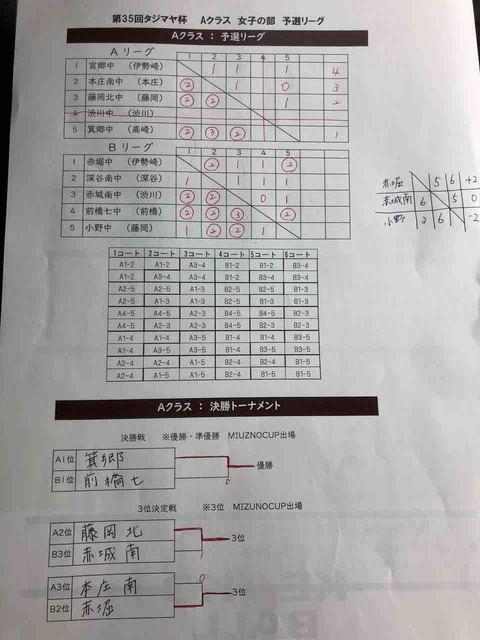 第35回タジマヤ杯 Aクラス 女子の部 予選リーグ
Aクラス : 予選リーグ
Aリーグ 1 2 3 4 5
1 宮郷中 (伊勢崎) 1 1 1 4
2 本庄南中 (本庄) ② 1 0 3
3 藤岡北中 (藤岡) ② ② 1 2
4 渋川中 (渋川)
5 箕郷中 (高崎) ② ③ ② 1
Bリーグ 1 2 3 4 5
1 赤堀中 (伊勢崎) ② 1 1 ②
2 深谷南中 (深谷) 1 1 1 1
3 赤城南中 (渋川) ② ② 0 1
4 前橋七中 (前橋) ② ② ③ ②
5 小野中 (藤岡) 1 ② ② 1
赤堀 5 6 +2
赤城南 6 5 0
小野 2 6 -2
1コート 2コート 3コート 4コート 5コート 6コート
A1-2 A1-2 A3-4 B1-2 B1-2 B3-4
A1-2 A3-4 A3-4 B1-2 B3-4 B3-4
A2-5 A2-5 A1-3 B2-5 B2-5 B1-3
A2-5 A1-3 A1-3 B2-5 B1-3 B1-3
A4-5 A4-5 A2-3 B4-5 B4-5 B2-3
A4-5 A2-3 A2-3 B4-5 B2-3 B2-3
A1-4 A1-4 A3-5 B1-4 B1-4 B3-5
A1-4 A3-5 A3-5 B1-4 B3-5 B3-5
A2-4 A2-4 A1-5 B2-4 B2-4 B1-5
A2-4 A1-5 A1-5 B2-4 B1-5 B1-5
Aクラス : 決勝トーナメント
決勝戦 ※優勝・準優勝 MIUZNOCUP出場
A1位 箕郷
優勝
B1位 前橋七 0
3位決定戦 ※3位 MIZUNOCUP出場
A2位 藤岡北
3位
B3位 赤城南 1
A3位 本庄南 0
3位
B2位 赤堀